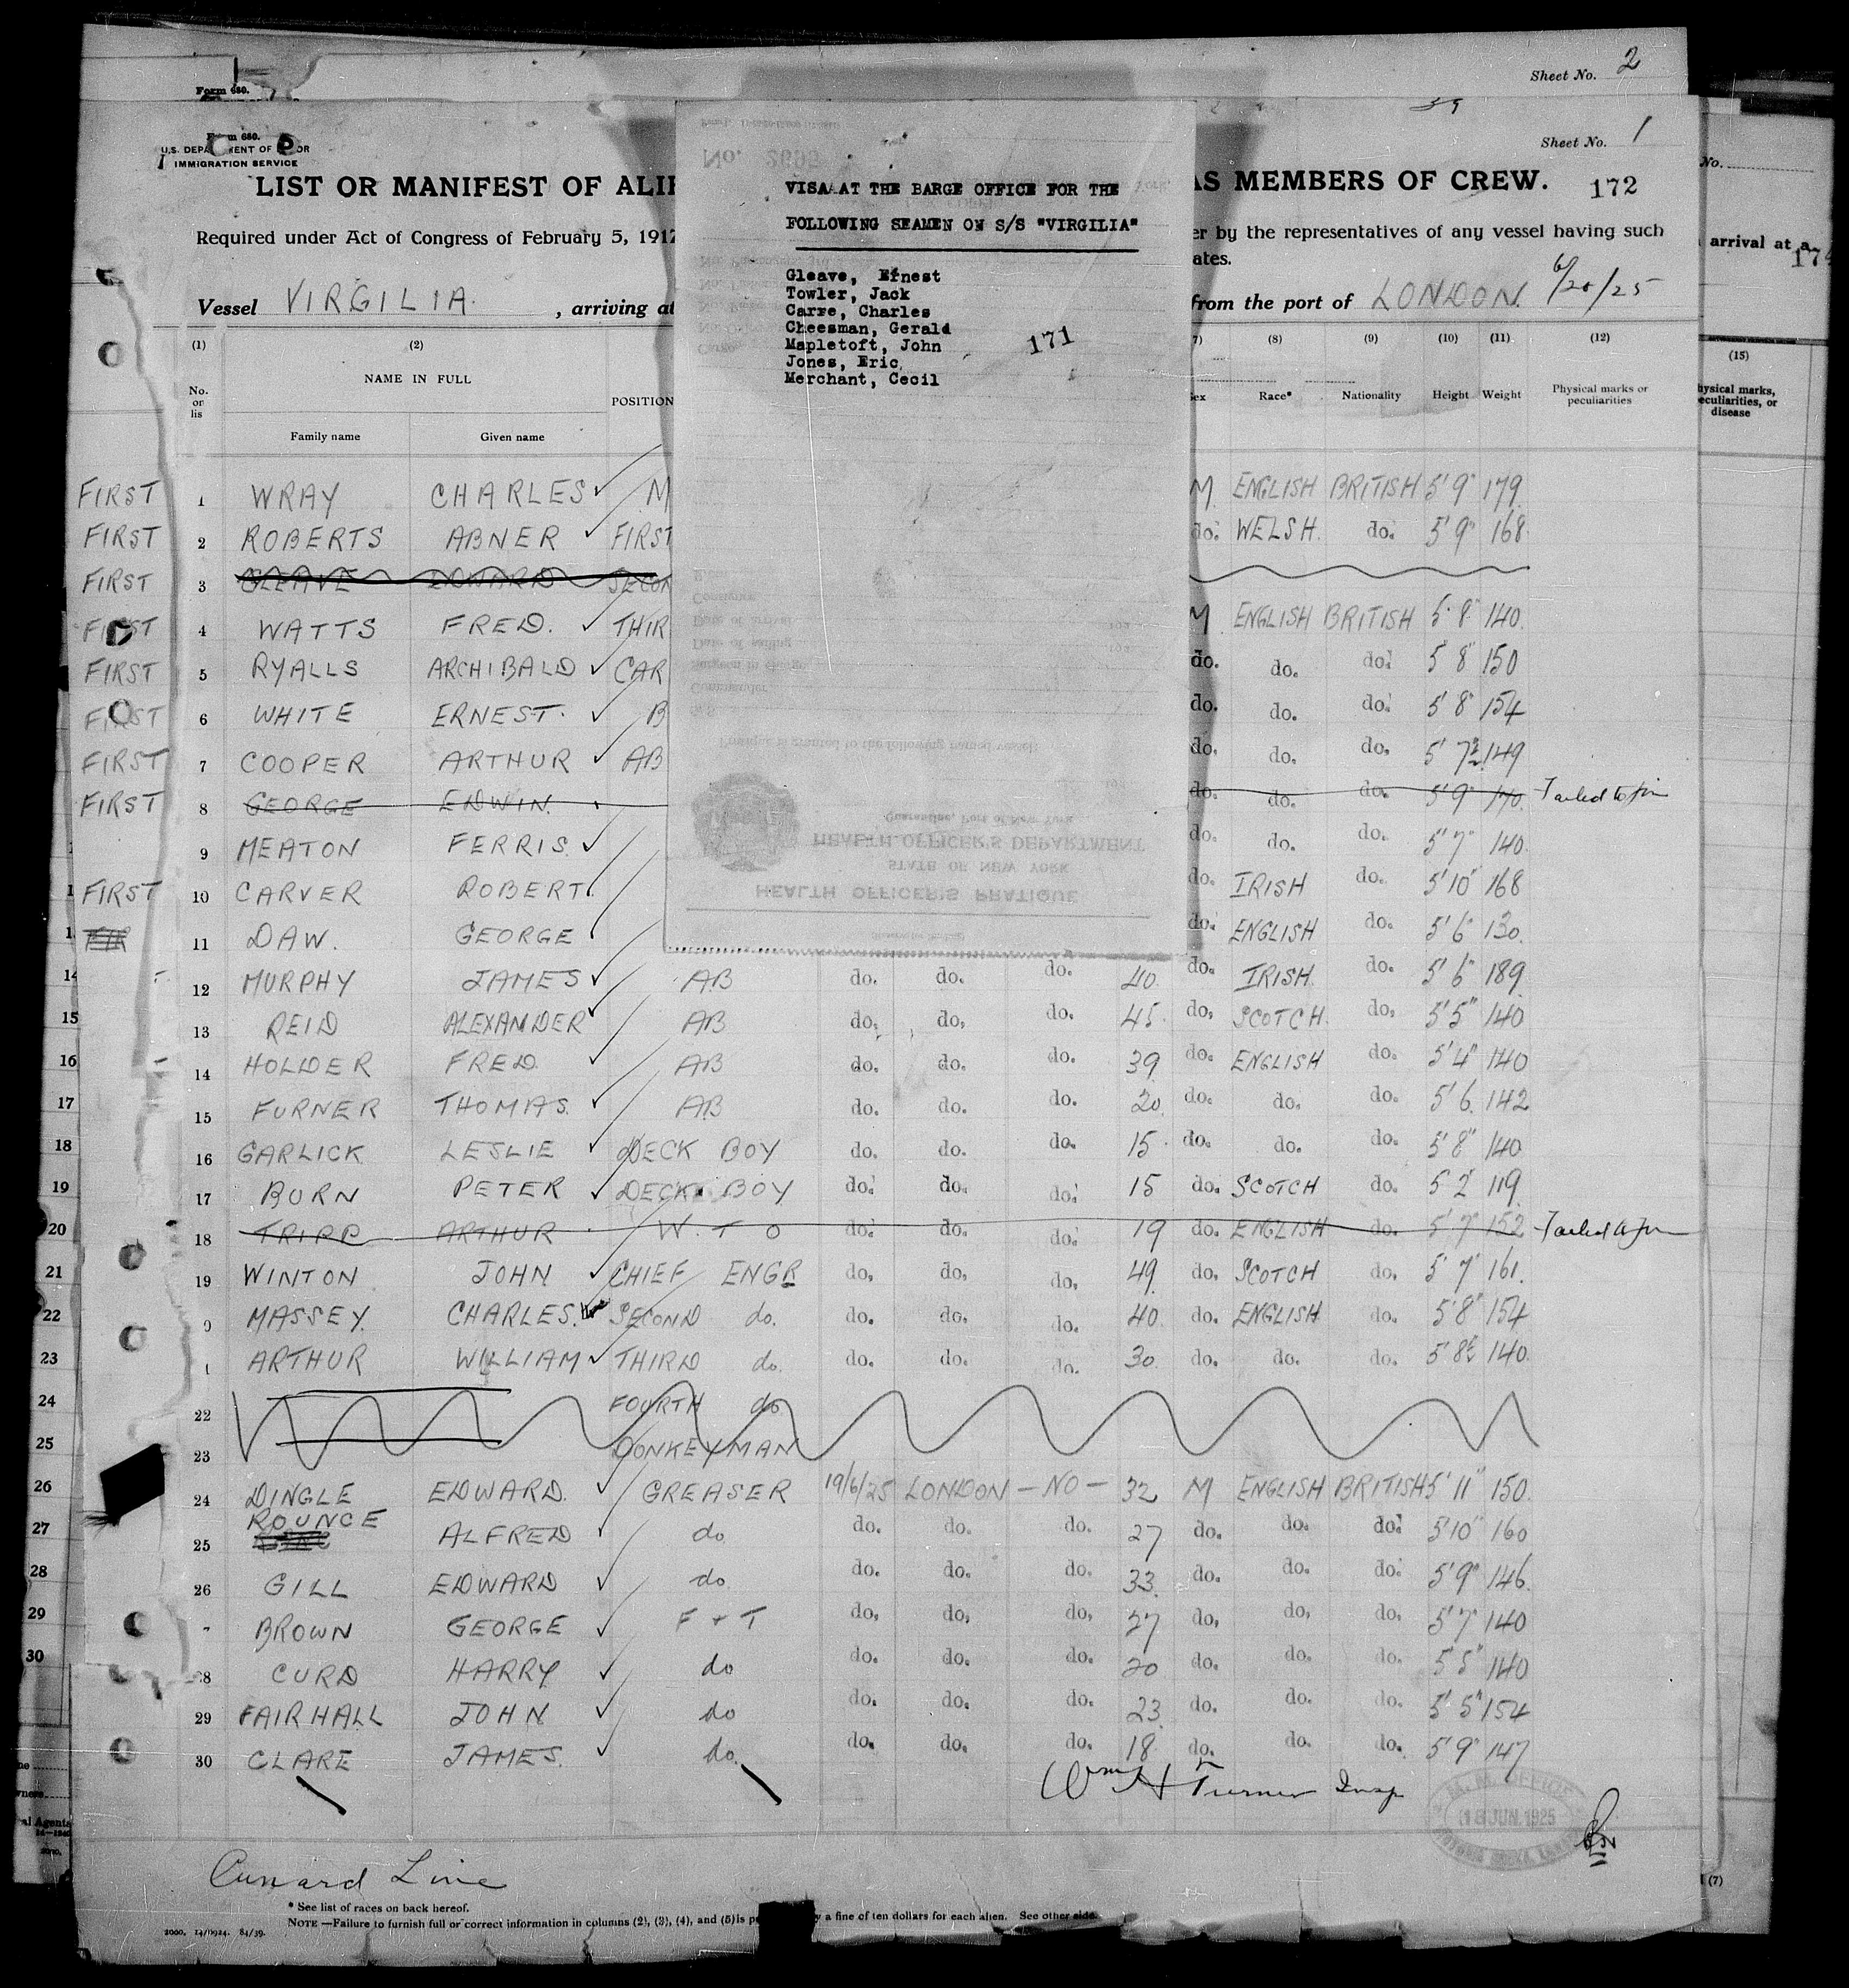 Sheet No. 2
Form 680.
Sheet No. 1
Form 680.
IMMIGRATION SERVICE
LIST OR MANIFEST OF ALIE
AS MEMBERS OF CREW.
172
Required under Act of Congress of February 5, 1917
er by the representatives of any vessel having such
ates.
arrival at a
174
Vessel VIRGILIA. , arriving at
from the port of LONDON. 6/20/25
VISA AT THE BARGE OFFICE FOR THE
FOLLOWING SEAMEN ON S/S "VIRGILIA"
Gleave, Ernest
Towler, Jack
Carre, Charles
Cheesman, Gerald
Mapletoft, John
Jones, Eric
Merchant, Cecil
171
No. 2695
Date of arrival
Date of sailing
Surgeon in charge
Commander
Pratique is granted to the following named vessel:
Quarantine, Port of New York
HEALTH OFFICER'S DEPARTMENT
STATE OF NEW YORK
HEALTH OFFICER'S PRATIQUE
(1) (2) (8) (9) (10) (11) (12) (15)
No. on lis
NAME IN FULL
Family name Given name POSITION
Sex Race* Nationality Height Weight Physical marks or peculiarities
hysical marks, eculiarities, or disease
FIRST 1 WRAY CHARLES M M. ENGLISH BRITISH 5'9" 179
FIRST 2 ROBERTS ABNER FIRST do. WELSH. do. 5'9" 168
FIRST 3 GLEAVE EDWARD SECON
FIRST 4 WATTS FRED. THIR M. ENGLISH BRITISH 5'8" 140.
FIRST 5 RYALLS ARCHIBALD CAR do. do. do. 5'8" 150
FIRST 6 WHITE ERNEST. B do. do. do. 5'8" 154
FIRST 7 COOPER ARTHUR AB do. do. do. 5'7½ 149
FIRST 8 GEORGE EDWIN. do. do. do. 5'9" 140. Failed to join
9 MEATON FERRIS. do. do. do. 5'7" 140.
FIRST 10 CARVER ROBERT. do. IRISH do. 5'10" 168
11 DAW. GEORGE do. ENGLISH do. 5'6" 130.
14 12 MURPHY JAMES AB do. do. do. 40. do. IRISH. do. 5'6" 189.
15 13 REID ALEXANDER AB do. do. do. 45. do. SCOTCH. do. 5'5" 140
16 14 HOLDER FRED. AB do. do. do. 39. do. ENGLISH do. 5'4" 140
17 15 FURNER THOMAS. AB do. do. do. 20. do. do. do. 5'6. 142
18 16 GARLICK LESLIE DECK BOY do. do. do. 15. do. do. do. 5'8" 140
19 17 BURN PETER DECK BOY do. do. do. 15 do. SCOTCH do. 5'2" 119.
20 18 TRIPP ARTHUR W. T O do. do. do. 19 do. ENGLISH do. 5'7" 152 Failed to Join
21 19 WINTON JOHN CHIEF ENGR do. do. do. 49. do. SCOTCH do. 5'7" 161.
22 0 MASSEY. CHARLES. SECOND do. do. do. do. 40. do. ENGLISH do. 5'8" 154
23 1 ARTHUR WILLIAM THIRD do. do. do. do. 30. do. do. do. 5'8½ 140.
24 22 FOURTH do
25 23 DONKEYMAN
26 24 DINGLE EDWARD. GREASER 19/6/25 LONDON - NO - 32 M ENGLISH BRITISH 5'11" 150.
27 25 ROUNCE ALFRED do do. do. do. 27 do. do. do. 5'10" 160
28 26 GILL EDWARD do do. do. do. 33. do. do. do. 5'9" 146.
29 BROWN GEORGE F + T do. do. do. 27 do. do. do. 5'7" 140
30 28 CURD HARRY do do. do. do. 20 do. do. do. 5'5" 140
29 FAIRHALL JOHN do do. do. do. 23. do. do. do. 5'5" 154
30 CLARE JAMES. do. do. do. do. 18. do. do. do. 5'9" 147
Wm H Turner Insp
M. M. OFFICE
18 JUN. 1925
Cunard Line
* See list of races on back hereof.
NOTE —Failure to furnish full or correct information in columns (2), (3), (4), and (5) is p
y a fine of ten dollars for each alien. See other side.
2000. 14/10924. 84/39.